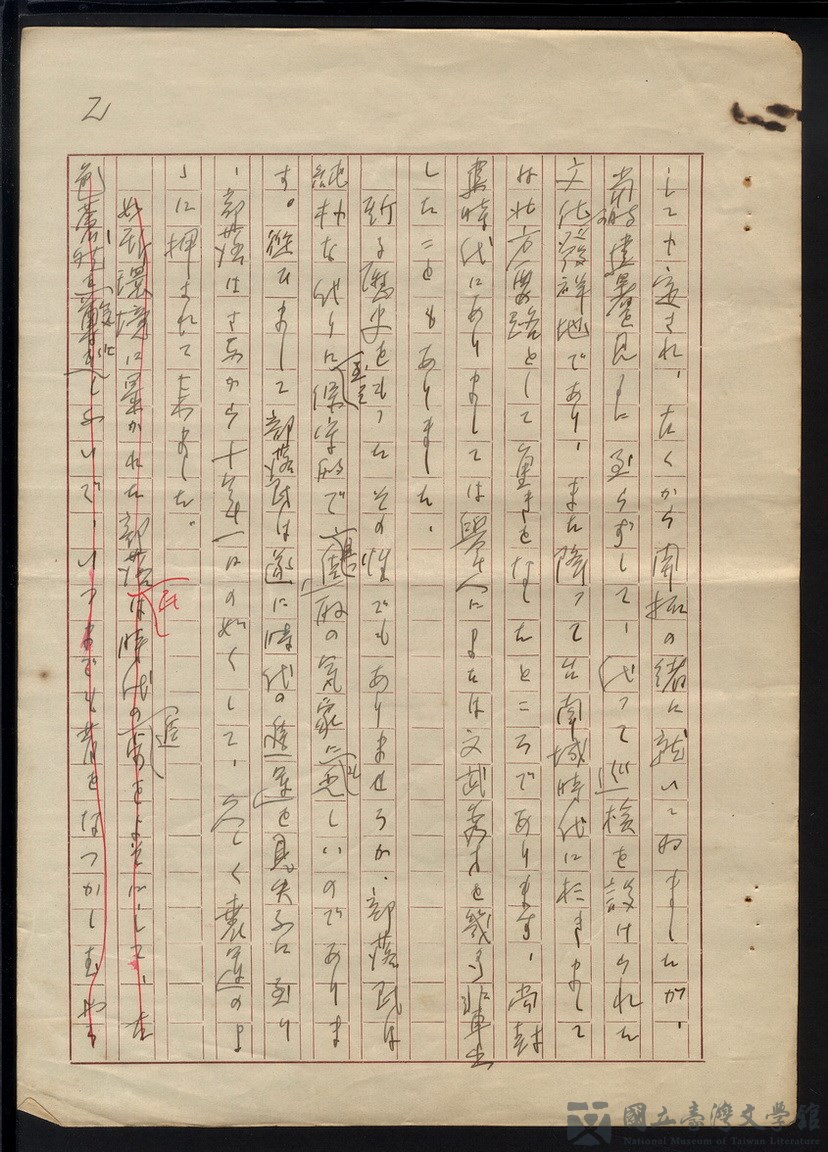 2
して中定され、古くから開拓の緒に就いてゐましたが、
當時建署を見しに至らずして、代つて巡檢を設けられた
文化發祥地であり、また降つて台南城時代に於きまして
は北方要路として重きをなしたところであります。尚封
建時代にありましては擧人にまたは文武秀才を幾多輩出
したこともありました。
斯る歴史をもつたその性でもありませうか、部落民は
純朴な代りに保守的で進取の気象に乏しいのでありま
す。從ひまして部落民は遂に時代の進運を見失ふに至り
、部落はさながら十年一日の如くして、久しく衰運のま
ゝに押されて來ました。
如斯環境に置かれた部落民は時代の進歩をよそにして、古
色蒼然としないで、いつまでも昔をなつかしむやう
國立臺灣文學館
National Museum of Taiwan Literature